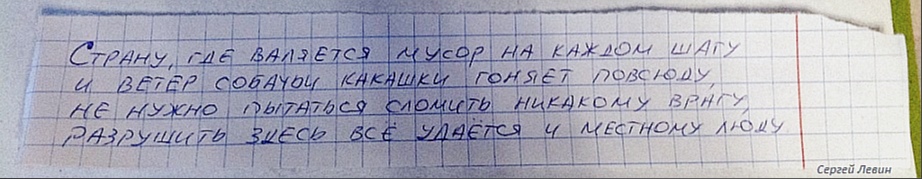 Страну, где валяется мусор на каждом шагу
и ветер собачьи какашки гоняет повсюду,
не нужно пытаться сломить никакому врагу,
разрушить здесь всё удаётся и местному люду.
Сергей Левин